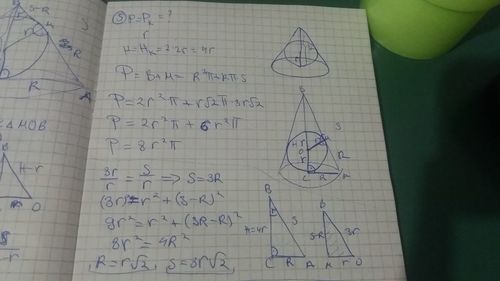 ⑤ P=Pₖ = ?
r
H=Hₖ=2·2r=4r
P=B+M= R²π+RπS
P=2r²π+r√2π·3r√2
P=2r²π+6r²π
P=8r²π
3r/r = S/R ⟹ S=3R
(3r)²=r²+(S-R)²
9r²=r²+(3R-R)²
8r²=4R²
R=r√2, S=3r√2,
S-R
M
S
R
A
MOB
B
H-r
O
B
S
H-r
M
R
O
r
C
R
A
B
H=4r
S
C R A
B
S-R
3r
M r O